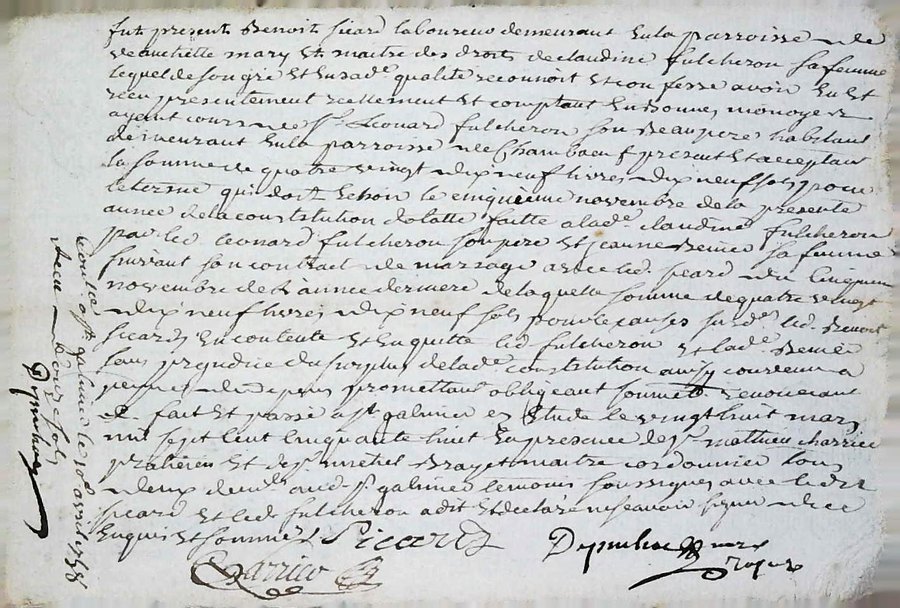 fut present Benoit sicard laboureur demeurant en la parroisse de
veauchette mary et maitre des droits de claudine fulcheron sa femme
lequel de son gre et en sad.e qualite reconnoit et confesse avoir eu et
receu presentement reellement et comptant en bonne monoye et
ayant cours de s.r Leonard fulcheron son beaupere habitant
demeurant en la parroisse de Chambaeuf present et acceptant
la somme de quatre vingt dix neuf livres dix neuf sols pour
le terme qui doit echoir le cinquieme novembre de la presente
année de la constitution de latte faitte a lad.e claudine fulcheron
par led. leonard fulcheron son pere et jeanne sa femme
suivant son contract de mariage avec led. picard du cinquieme
novembre de l année derniere de laquelle somme de quatre vingt
dix neuf livres dix neuf sols pour les causes susd.e led. Benoit
sicard s en contente et en quitte led fulcheron et lad.e
sans prejudice du surplus de lad.e constitution ainsy convenu a
peynes de depens promettant obligeant soumett renoncant
fait et passé a s.t galmier en Etude le vingt huit mars
mil sept cent cinquante huit en presence de s.r matthieu charrier
praticien et de s.r michel Brayet maitre cordonnier tous
deux dem.t aud. s.t galmier temoins soussignes avec led.
picard et led fulcheron a dit et declaré ne scavoir signer de ce
enquis et sommé
Picard
Conllée a s.t galmier le 10.e avril 1758
Receu douze sols